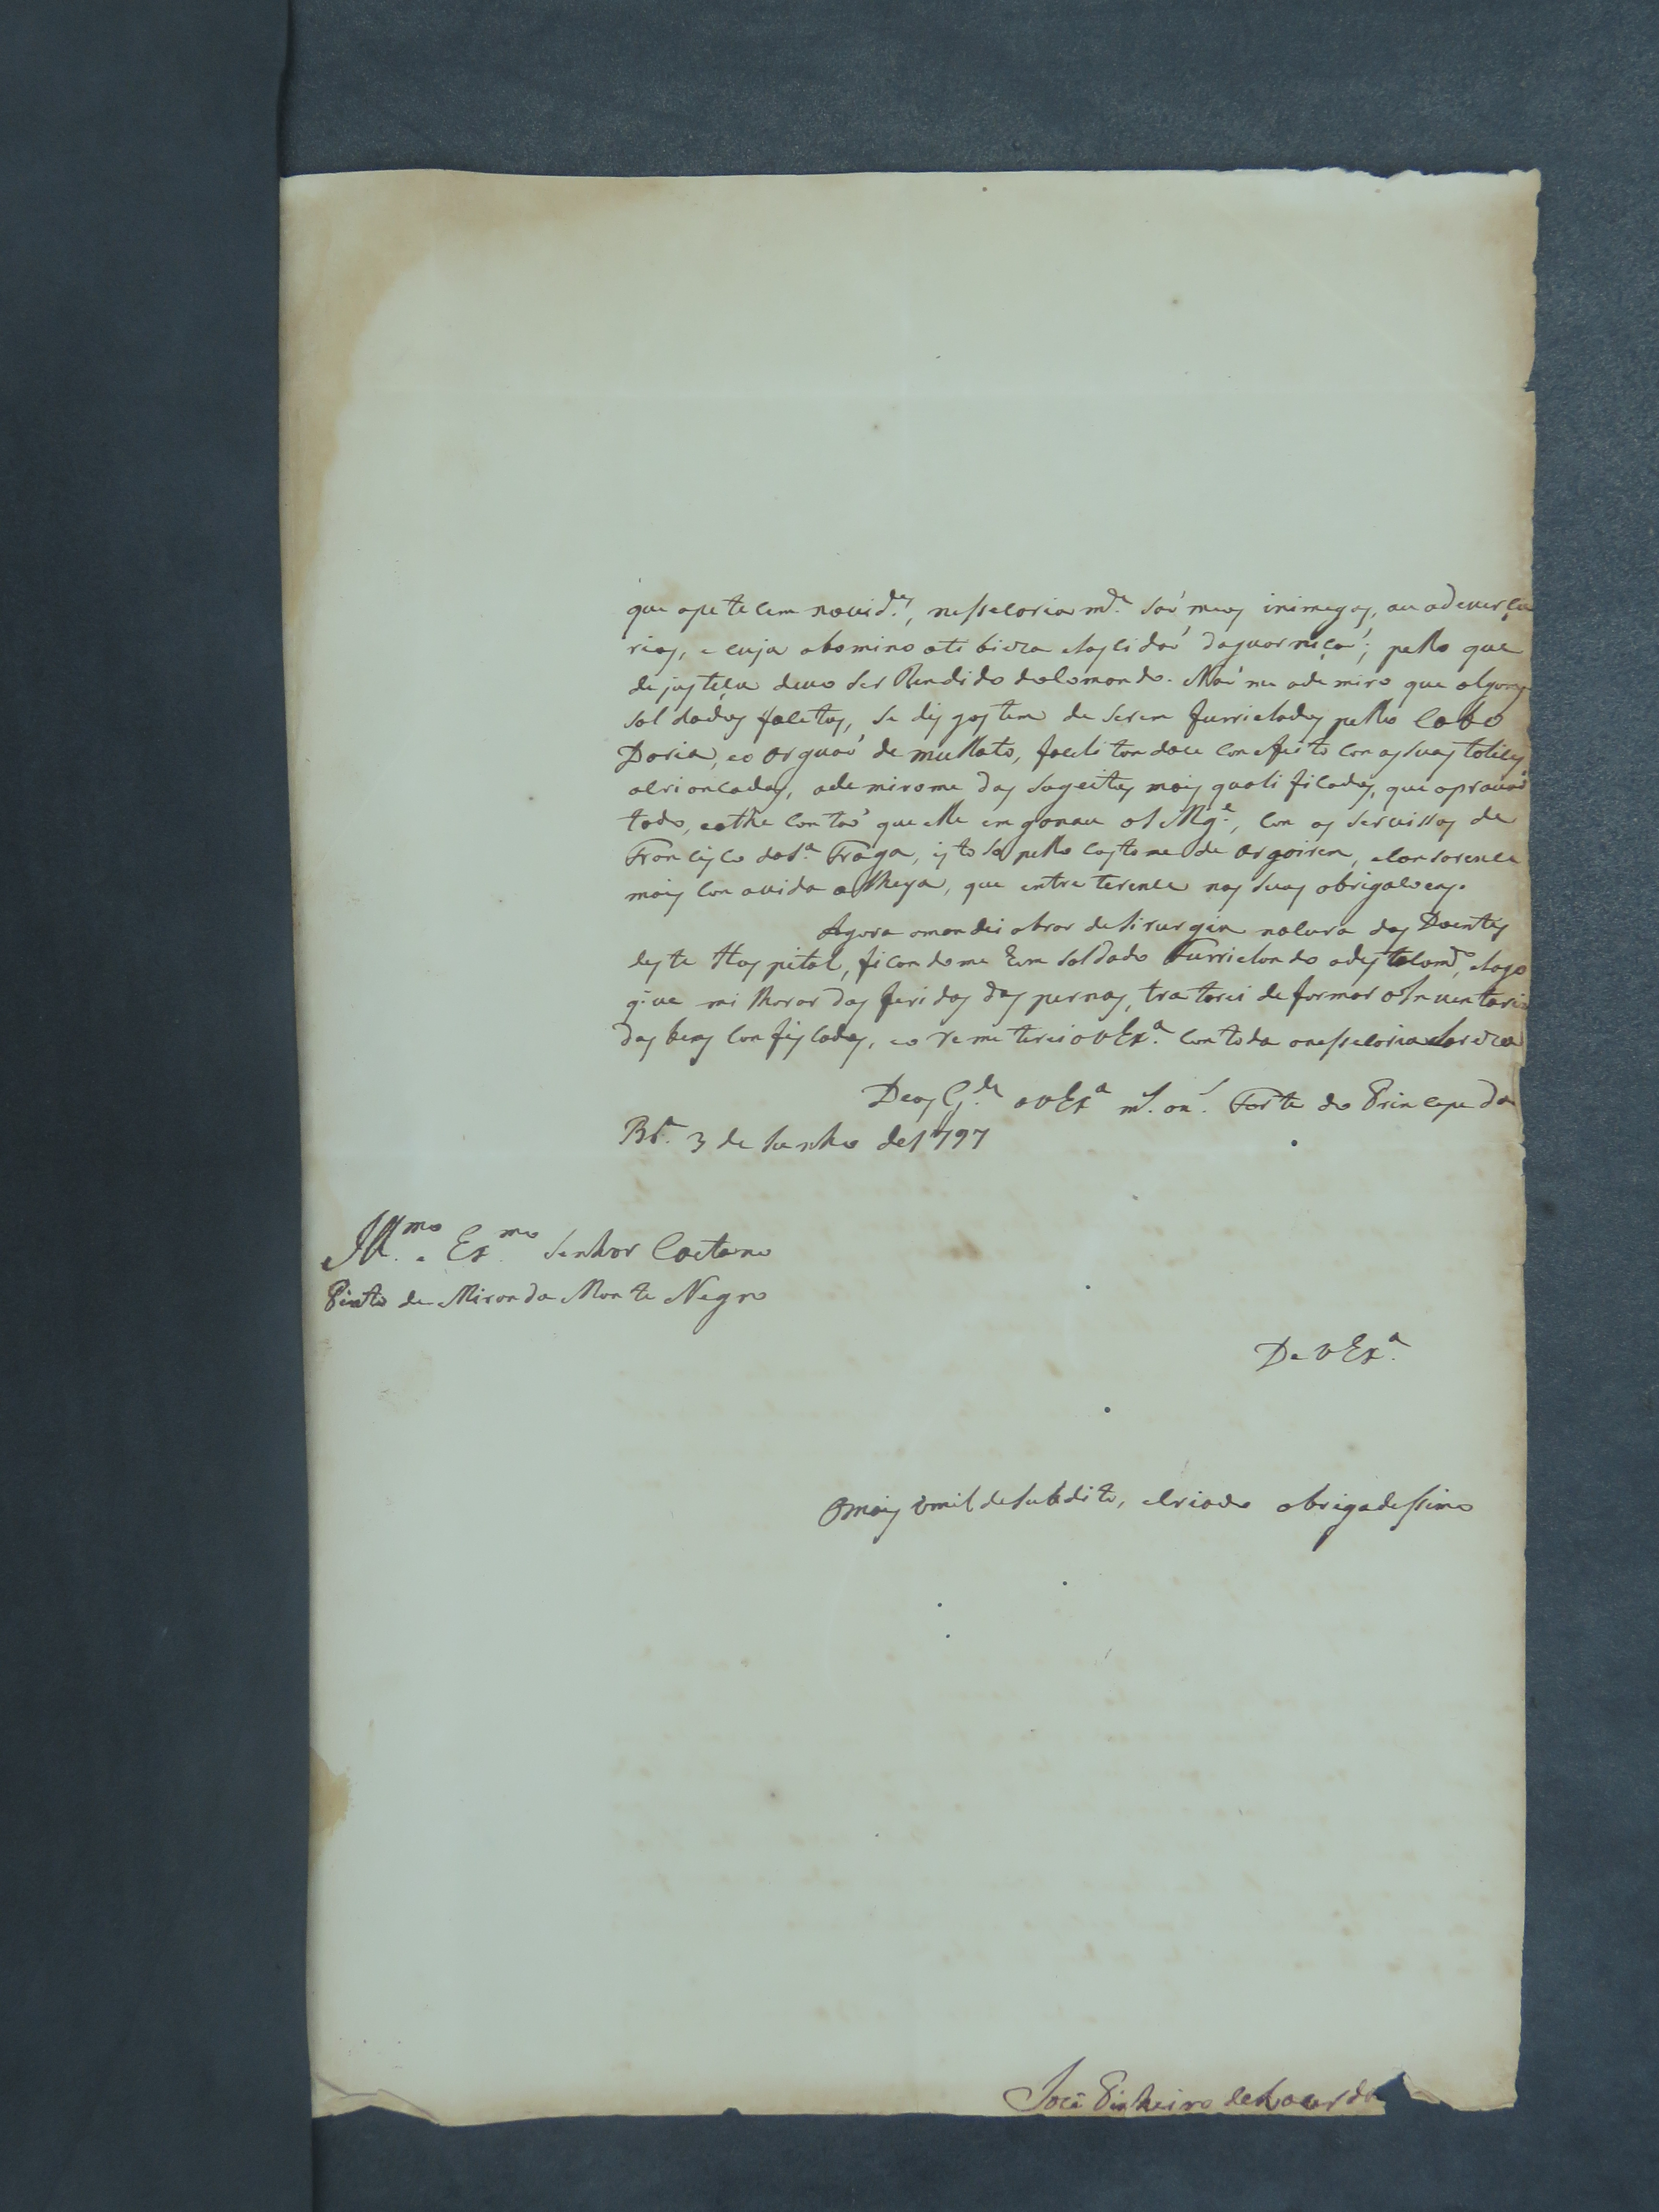 que apetecem novid.es, nessecoriam.de saó meos inimegos, ou adeverça
rios, e cuja abomino atibieza elascidaó daguarniçaó; pello que
dejusteça devo ser Rendido dolomando. Naó me ademiro que algons
soldados faletos, se disgostem de serem furrielados pello Cabo
Doria, eo arguaó de mullato, facelitandoce con efeito con assuas tolices
acrioncadas, ademirome dos sogeitos mais qualificados, que aprovaó
todo, eathe contaó que elle enganau os Mg.es, con os servissos de
Francisco das.a Fraga, isto só pello costome de argoirem,
mais con avida alheya, que entreterence nas suas obrigacoens.
Agora omandei obrar desirurgia nacura dos Doentes
deste Hospital, ficandome hum soldado Furrielando adestacam.to, elogo
que milhorar das feridas das pernas, tratarei de formar oInventario
dos bens confiscados, eo remeterei a VEx.a con toda anessecoria
Deos G.de a VEx.a m.s an.s Forte do Principe da
Br.a 3 de Junho de 1797
Ill.mo e Ex.mo Senhor Caetano
Pinto de Miranda Monte Negro
De VEx.a
Omais umilde subdito, ecriado obrigadessimo
Joze Pinheiro deLacerda